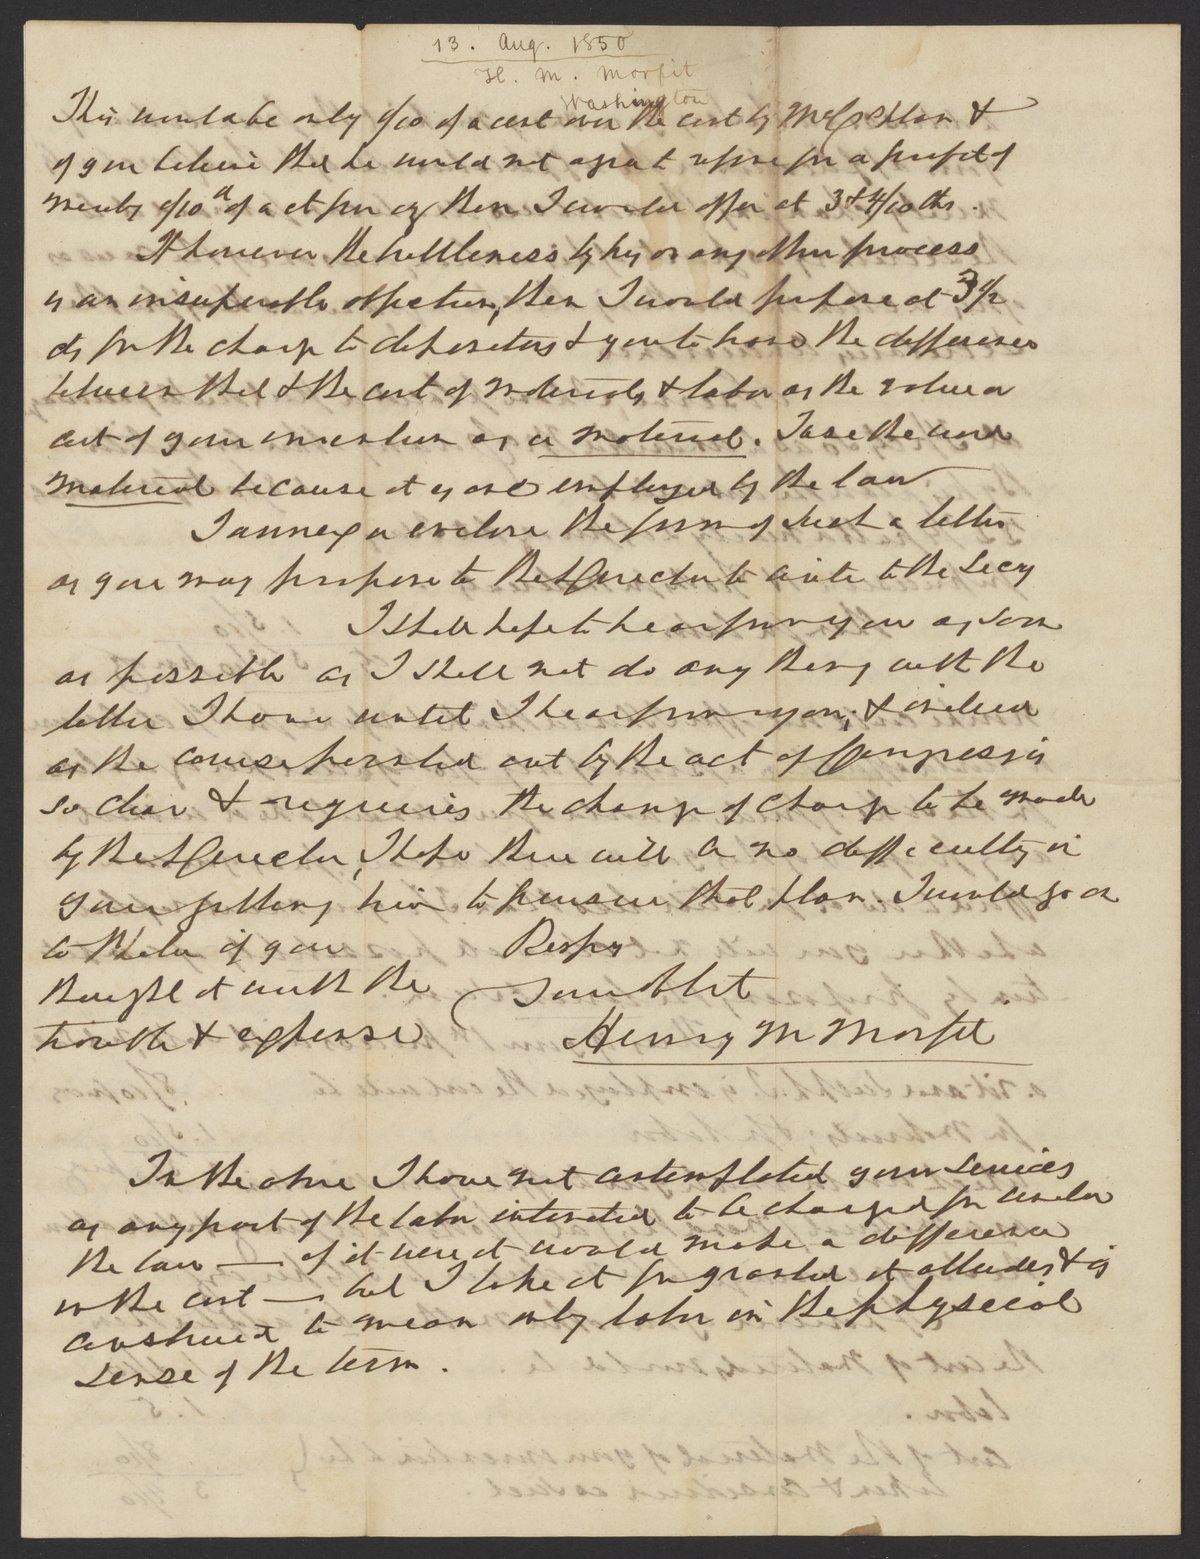 13. Aug. 1850
H. M. Morfit
Washington
This would be only 9/10 of a cent over the cost by McC's plan &
if you believe that he would not again refuse for a profit of
nearly 9/10th of a ct per oz then I would offer at 3 & 4/10ths.
If however the brittleness by hy or any other process
is an insuperable objection, then I would propose at 3 1/2
cts for the charge to depositors & you to have the difference
between that & the cost of materials & labor as the value or
cost of your invention as a material. I use the word
material because it is one employed by the law
I annex or enclose the form of such a letter
as you may propose to the Director to write to the Secy
I shall hope to hear from you as soon
as possible as I shall not do any thing with the
letter I have until I hear from you; & indeed
as the course pointed out by the act of Congress is
so clear & requires the change of charge to be made
by the Director, I hope there will be no difficulty in
your getting him to pursue that plan. I would go on
to Phila if you
thought it worth the
trouble & expense
Respy
Your Obt
Henry M Morfit
In the above I have not contemplated your services
as any part of the labor intended to be charged for under
the law — if it were it would make a difference
in the cost — but I take it for granted it alludes & is
construed to mean only labor in the physical
sense of the term.